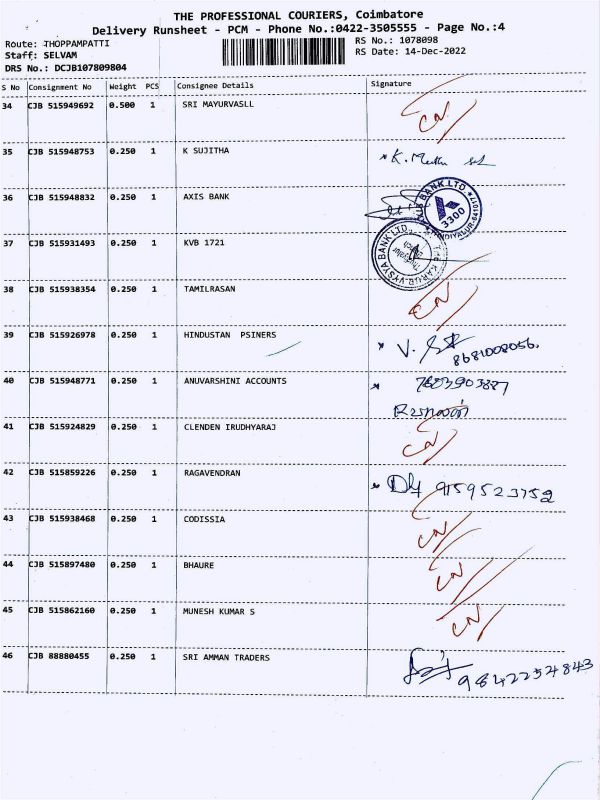 THE PROFESSIONAL COURIERS, Coimbatore
Delivery Runsheet - PCM - Phone No.:0422-3505555 - Page No.:4
Route: THOPPAMPATTI RS No.: 1078098
Staff: SELVAM RS Date: 14-Dec-2022
DRS No.: DCJB107809804
S No Consignment No Weight PCS Consignee Details Signature
34 CJB 515949692 0.500 1 SRI MAYURVASLL CN
35 CJB 515948753 0.250 1 K SUJITHA K.
36 CJB 515948832 0.250 1 AXIS BANK
BANK LTD. 3300
37 CJB 515931493 0.250 1 KVB 1721
THE KARUR VYSYA BANK LTD.
38 CJB 515938354 0.250 1 TAMILRASAN CN
39 CJB 515926978 0.250 1 HINDUSTAN PSINERS V.
8681008056.
40 CJB 515948771 0.250 1 ANUVARSHINI ACCOUNTS
41 CJB 515924829 0.250 1 CLENDEN IRUDHYARAJ CN
42 CJB 515859226 0.250 1 RAGAVENDRAN 9159523752
43 CJB 515938468 0.250 1 CODISSIA CN
44 CJB 515897480 0.250 1 BHAURE CN
45 CJB 515862160 0.250 1 MUNESH KUMAR S CN
46 CJB 88880455 0.250 1 SRI AMMAN TRADERS 9842254843